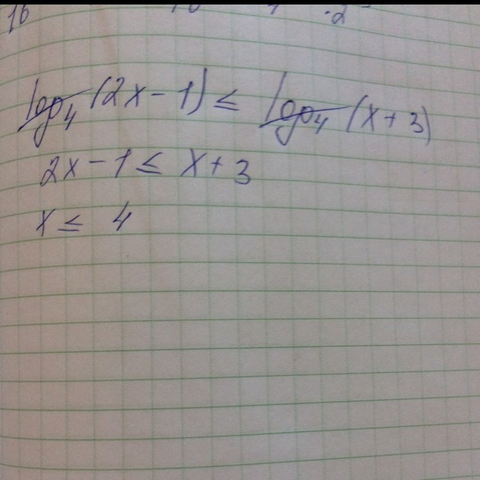 16 10 4 . 2
log₄ (2x - 1) ≤ log₄ (x + 3)
2x - 1 ≤ x + 3
x ≤ 4